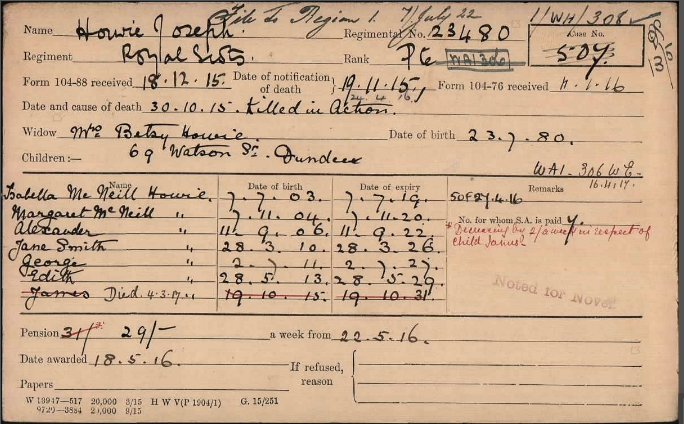 File to Region 1. 7/July 22 1/WH/308
Name Howie Joseph. Regimental No. 23480 Case No.
Regiment Royal Scots. Rank Pte WA1306 507.
Form 104-88 received 18.12.15. Date of notification of death 19.11.15. Form 104-76 received 11.1.16
24.4.16
Date and cause of death 30.10.15. Killed in Action.
Widow Mrs Betsy Howie. Date of birth 23.7.80.
Children:— 69 Watson St. Dundee
WA1.306 W.E.
16.4.17.
Name Date of birth Date of expiry Remarks
Isabella McNeill Howie. 7.7.03. 7.7.19. 50F27.4.16
Margaret McNeill " 7.11.04. 7.11.20. No. for whom S.A. is paid 7.
Alexander " 11.9.06. 11.9.22. in respect of
Jane Smith " 28.3.10. 28.3.26. child James
George " 2.7.11. 2.7.27.
Edith " 28.5.13. 28.5.29.
James Died. 4.3.17. " 19.10.15. 19.10.31
Noted for Nover
Pension 31/- 29/- a week from 22.5.16.
Date awarded 18.5.16. If refused, reason
Papers
W 19947—517 20,000 3/15 H W V(P 1904/1) G. 15/251
9720—3884 20,000 9/15